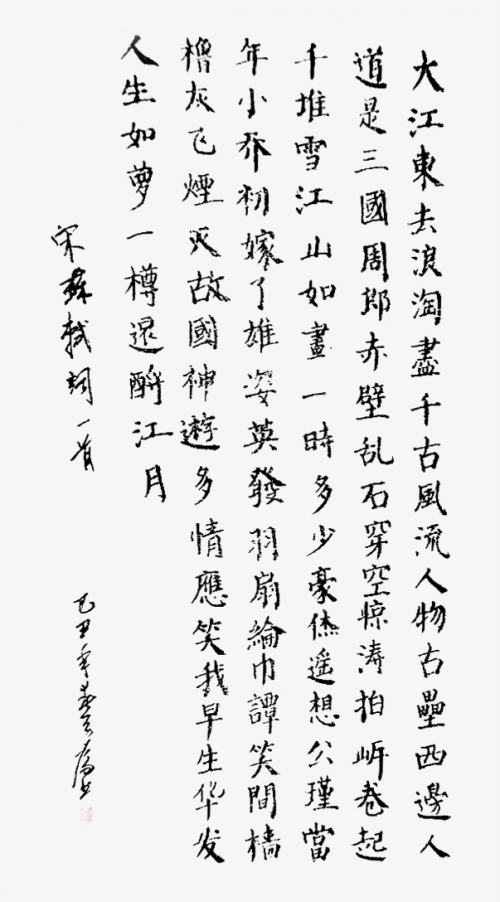 大江東去浪淘盡千古風流人物古壘西邊人
道是三國周郎赤壁乱石穿空惊涛拍岸卷起
千堆雪江山如畫一時多少豪傑遥想公瑾當
年小乔初嫁了雄姿英發羽扇綸巾譚笑間檣
櫓灰飞煙灭故國神遊多情應笑我早生华发
人生如夢一樽還酹江月
宋蘇軾詞一首
己丑年